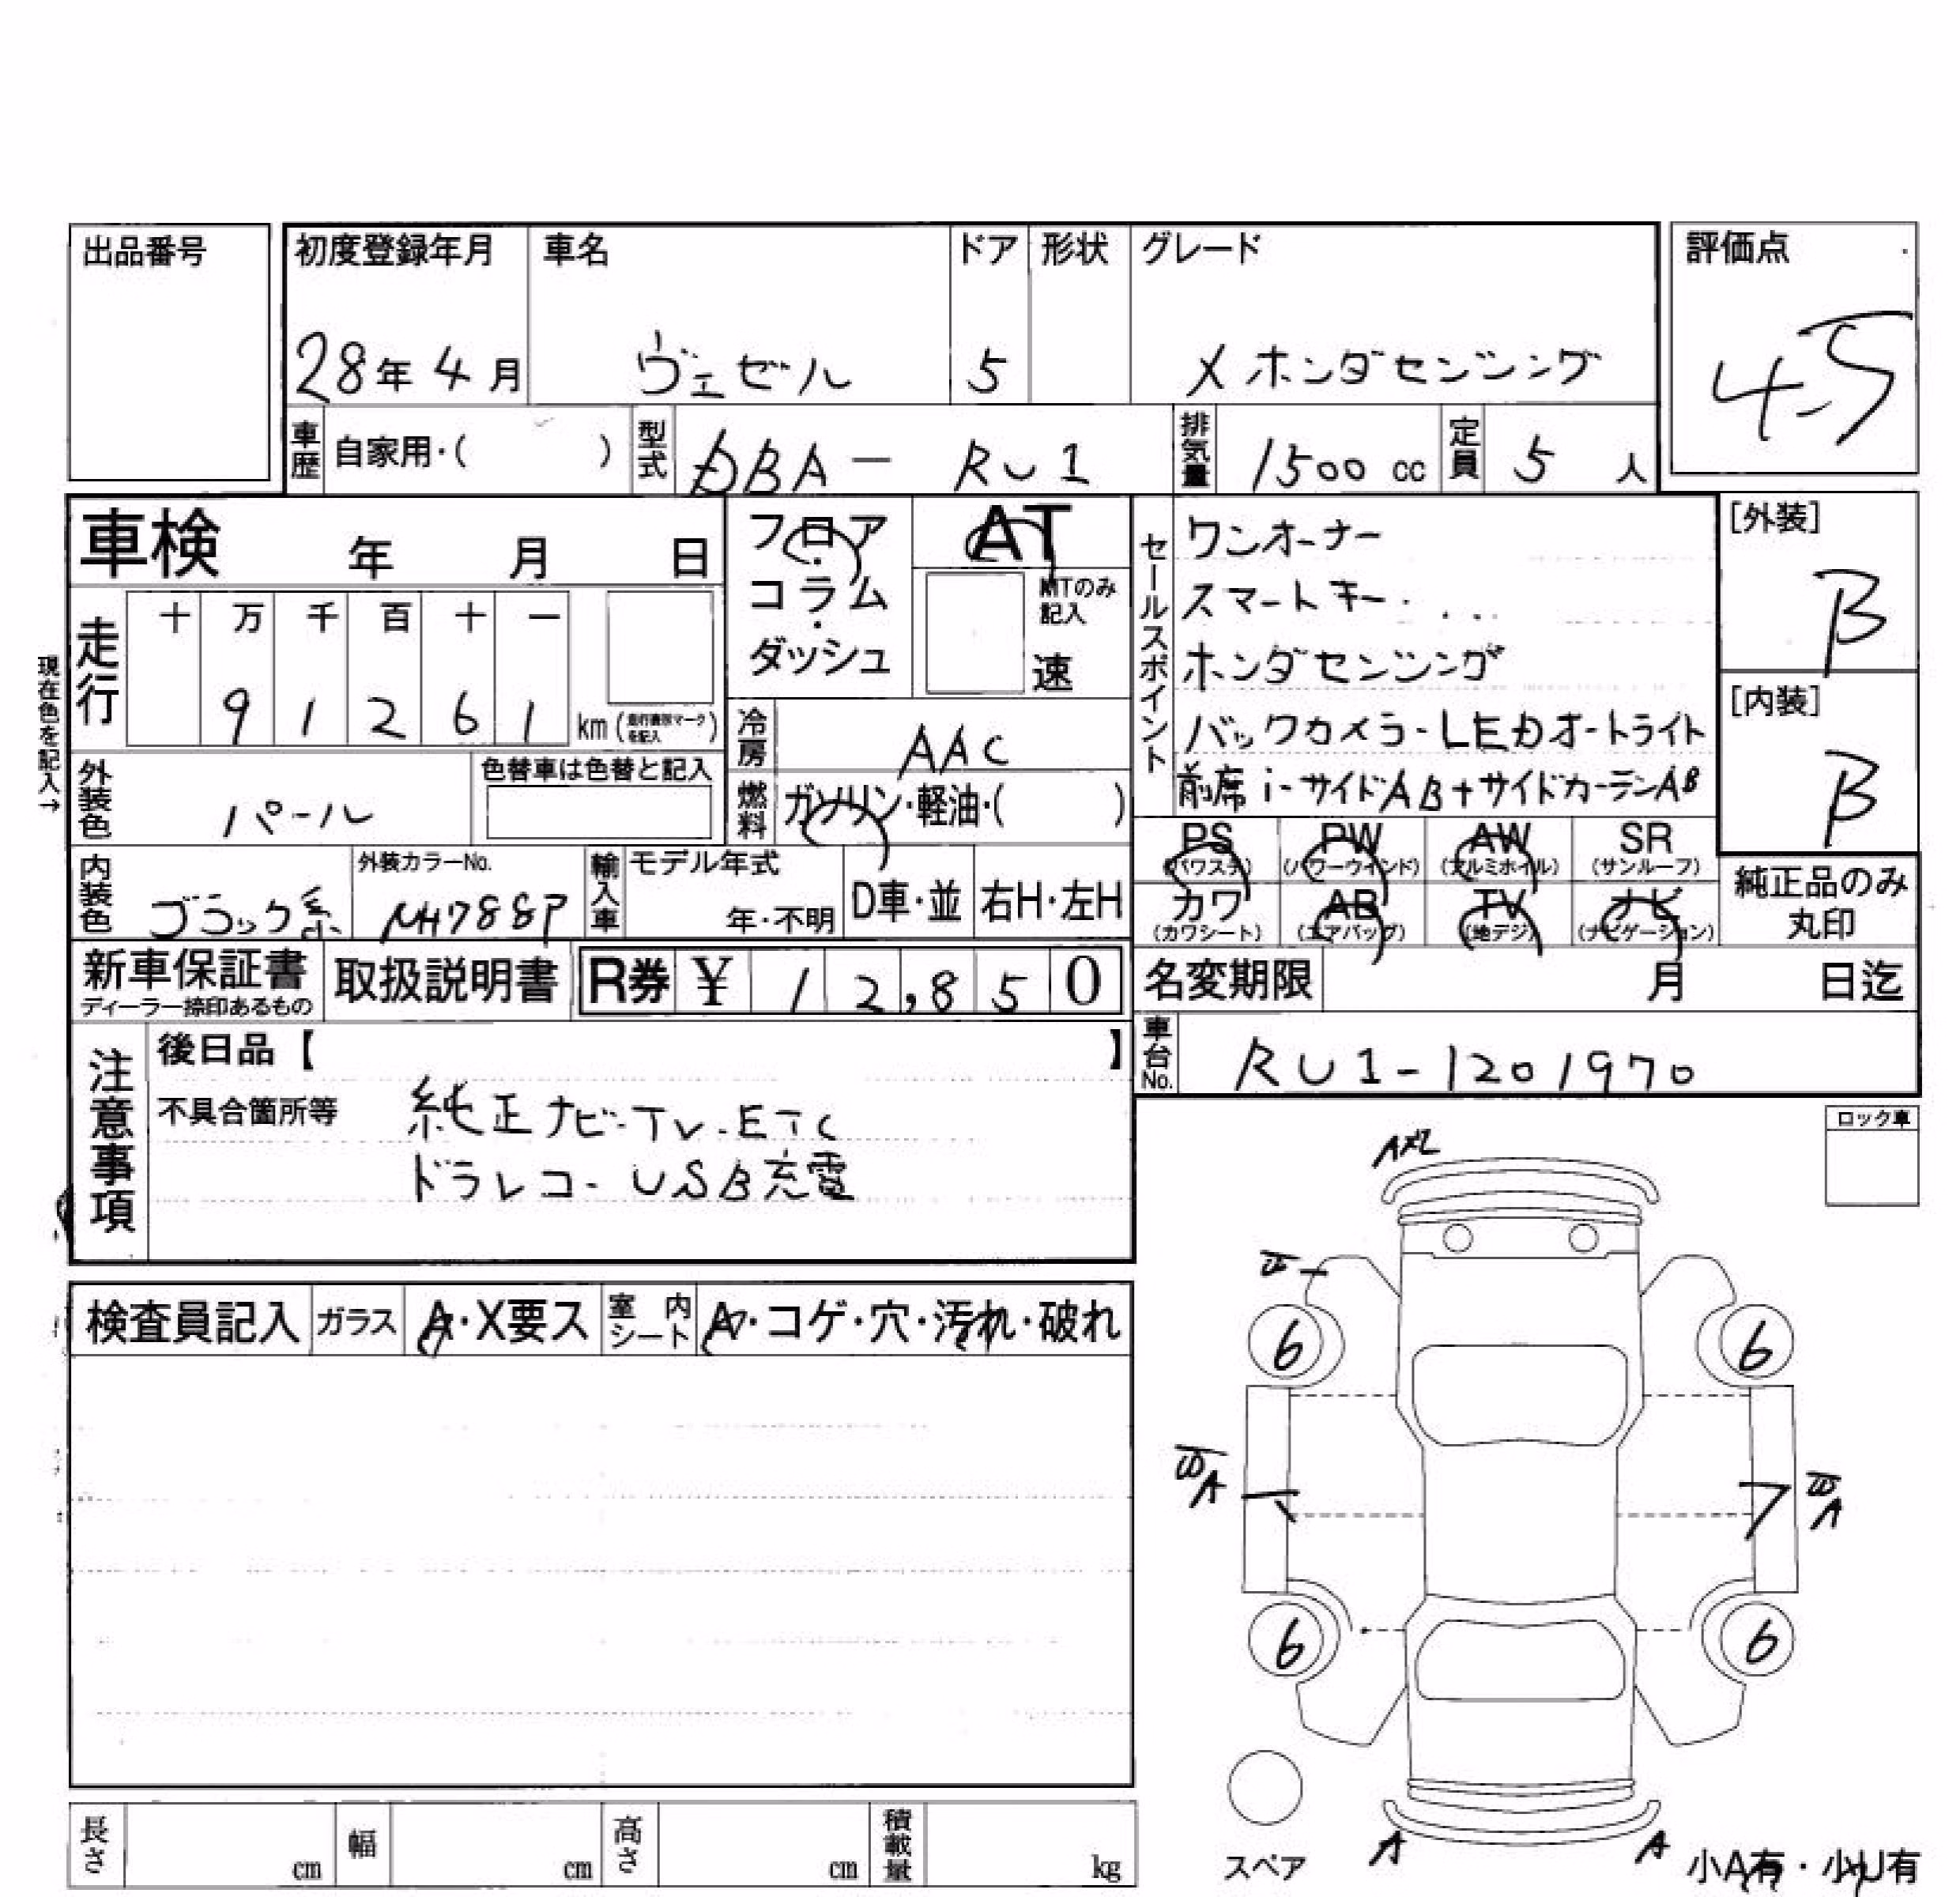 出品番号
初度登録年月 車名 ドア 形状 グレード 評価点
28年4月 ヴェゼル 5 X ホンダセンシング 4.5
車歴 自家用・( ) 型式 DBA - RU1 排気量 1500 cc 定員 5 人
車検 年 月 日
フロア・コラム・ダッシュ
AT
MTのみ記入
速
セールスポイント
ワンオーナー
スマートキー
ホンダセンシング
バックカメラ・LEDオートライト
前席i-サイドAB+サイドカーテンAB
[外装]
B
[内装]
B
現在色を記入→
走行 十 万 千 百 十 一
9 1 2 6 1 km (走行表示マークを記入)
冷房 AAC
外装色 パール 色替車は色替と記入
燃料 ガソリン・軽油・( )
PS (パワステ) PW (パワーウインド) AW (アルミホイル) SR (サンルーフ)
カワ (カワシート) AB (エアバッグ) TV (地デジ) ナビ (ナビゲーション)
純正品のみ
丸印
内装色 ブラック系 外装カラーNo. NH788P 輸入車 モデル年式 年・不明 D車・並 右H・左H
新車保証書 ディーラー捺印あるもの 取扱説明書 R券 ¥ 12,850
名変期限 月 日迄
注意事項
後日品【 】
車台No. RU1-1201970
不具合箇所等 純正ナビ・TV・ETC
ドラレコ・USB充電
ロック車
検査員記入 ガラス A・X要ス 室内シート A・コゲ・穴・汚れ・破れ
6 6
A A
6 6
長さ cm 幅 cm 高さ cm 積載量 kg
スペア
A A
小A有・小U有